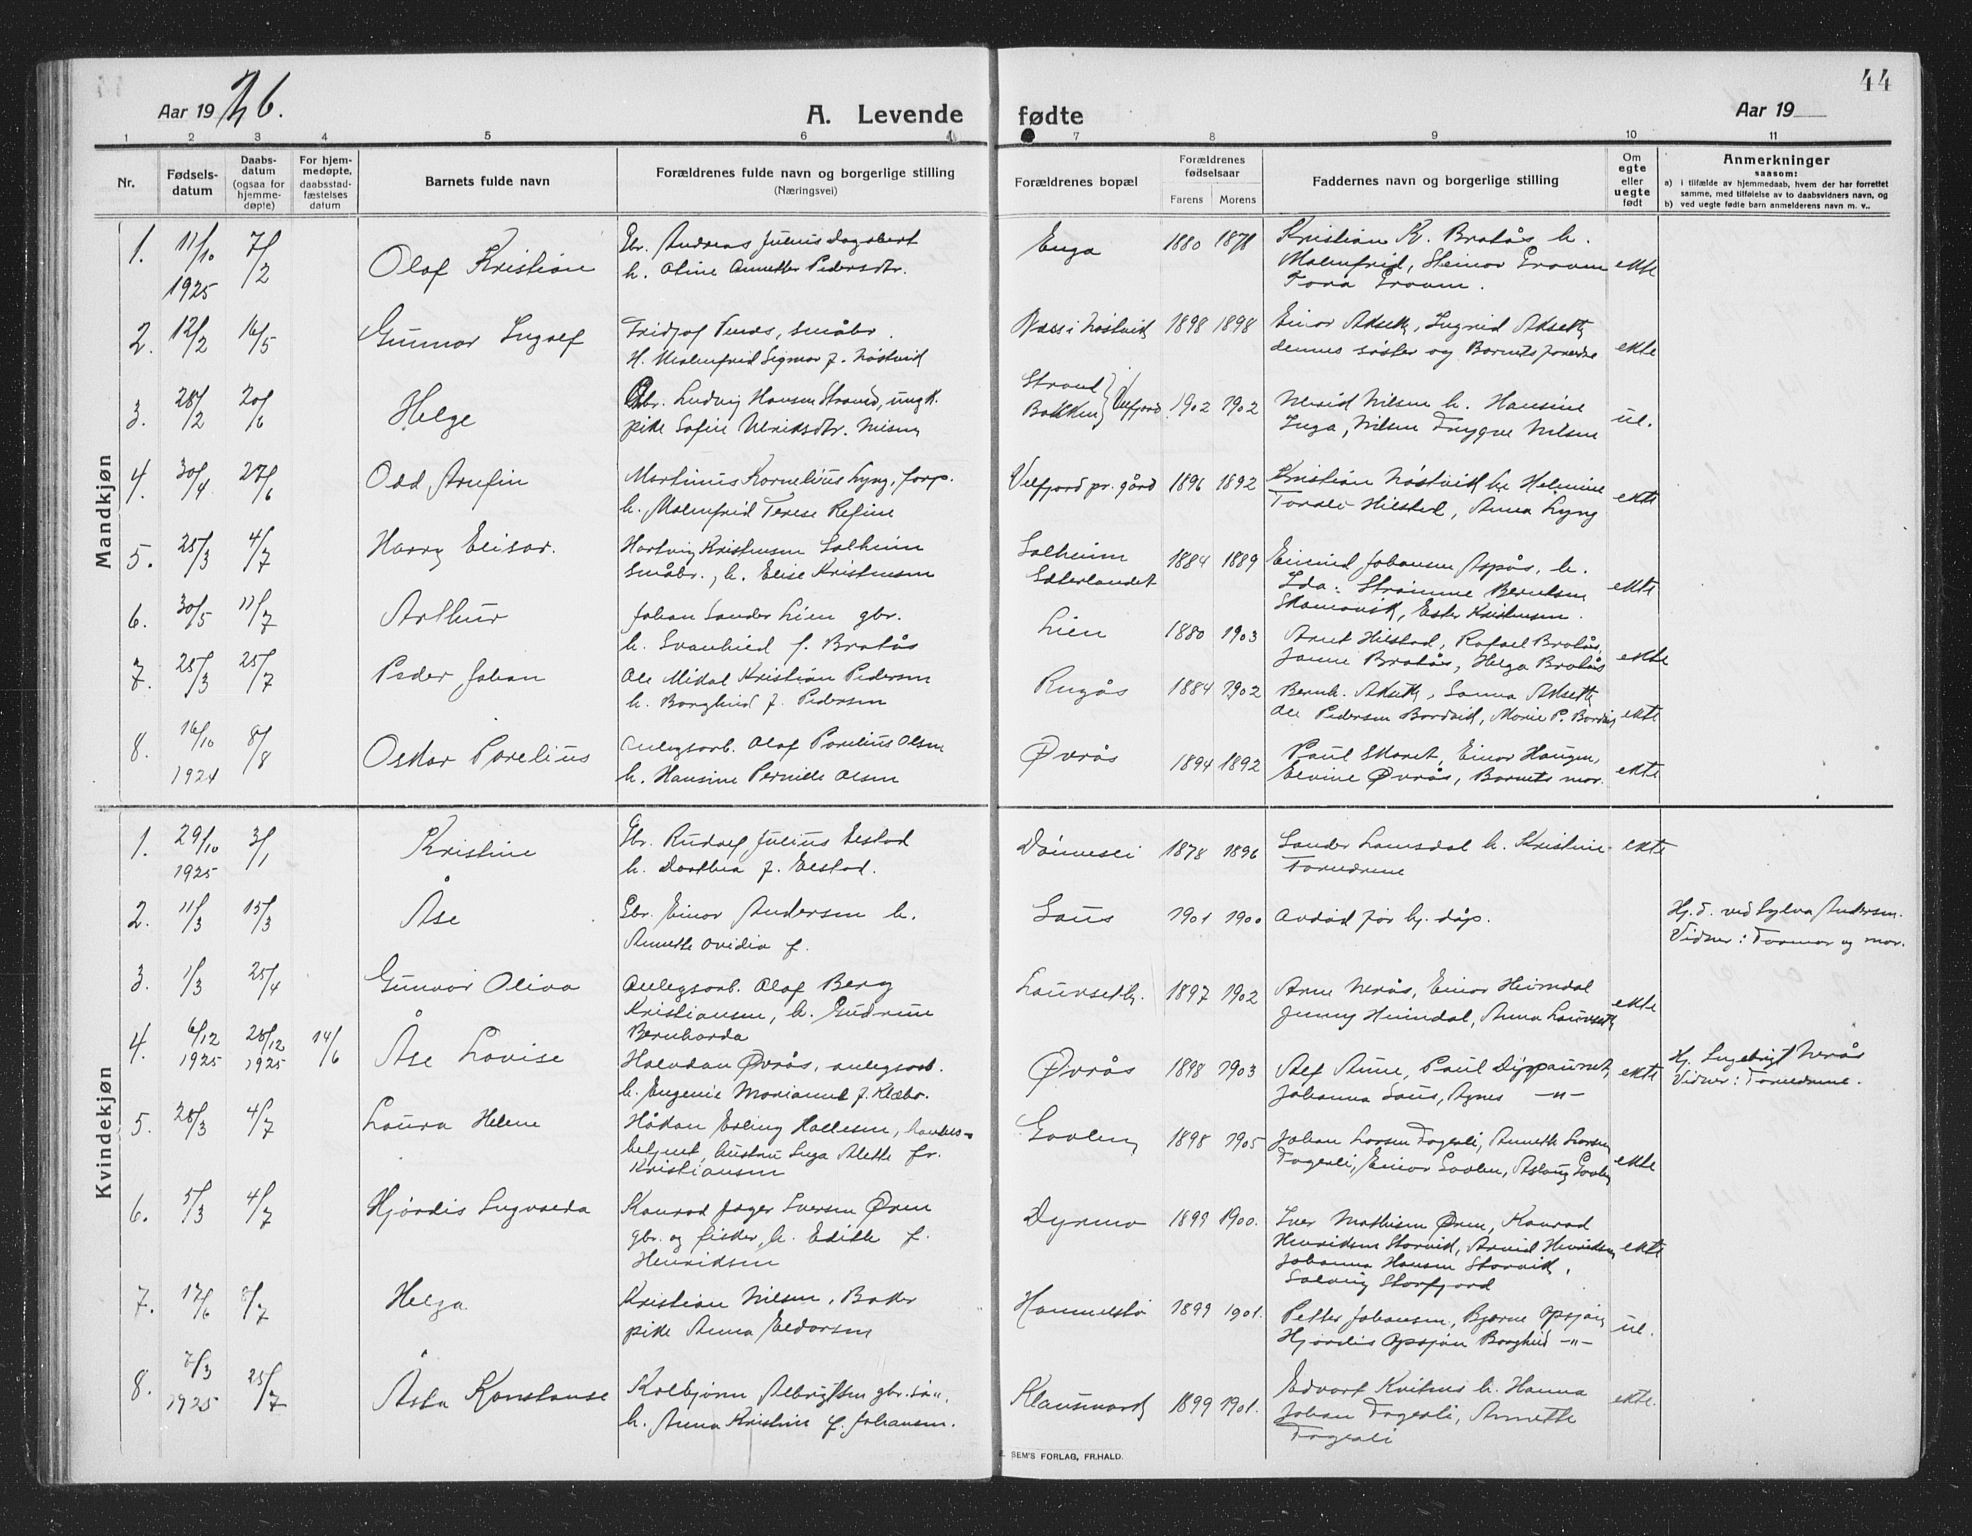 44
Aar 1926.
A. Levende fødte
Aar 19
1 2 3 4 5 6 7 8 9 10 11
Nr.
Fødselsdatum
Daabsdatum (ogsaa for hjemmedøpte)
For hjemmedøpte, daabsstadfæstelses datum
Barnets fulde navn
Forældrenes fulde navn og borgerlige stilling
(Næringsvei)
Forældrenes bopæl
Forældrenes fødselsaar
Farens Morens
Faddernes navn og borgerlige stilling
Om egte eller uegte født
Anmerkninger
saasom:
a) i tilfælde av hjemmedaab, hvem der har forrettet
samme, med tilføielse av to daabsvidners navn, og
b) ved uegte fødte barn anmelderens navn m. v..
Mandkjøn
1. 11/10 1925 7/2 Olaf Kristian
Gbr. Andreas Julius Dagsbert
h. Oline Annette Pedersdtr.
Enga 1880 1878
Kristian K. Bratås h.
Malmfrid, Steinar Groven
Tora Groven.
ekte
2. 12/2 16/5 Gunnar Ingolf
Fridjof Venes, småbr.
H. Malmfrid Sigmor f. Nøstvik
Næss i Nøstvik 1898 1898
Einar Aksetl, Ingrid Aksetl,
dennes søster og Barnets foreldre
ekte
3. 28/2 20/6 Helge
Gbr. Ludvig Hansen Strand, ungk.
pike Sofie Ulriksdtr. Nilsen
Strand Bakken Velfjord 1902 1902
Ulrid Nilsen h. Hansine
Inga, Nilsen Trygve Nilsen
ul.
4. 30/4 27/6 Odd Arnfin
Martinus Kornelius Lyng, forp.
h. Malmfrid Terese Refine
Velfjord pr. gård 1896 1892
Kristian Nøstvik h. Helmine
Toralv Hilstad, Anna Lyng
ekte
5. 25/3 4/7 Harry Elisar.
Hartvig Kristensen Solheim
Småbr., h. Elise Kristensen
Solheim
Sæterlandet 1884 1889
Eivind Johansen Aspås, h.
Ida: Strømme Berntsen
Skomovik, Ester Kristensen.
ekte
6. 30/5 11/7 Arthur
Johan Sander Lien gbr.
h. Svanhild f. Bratås
Lien 1880 1903
Arnt Hilstad, Rafael Bratås,
Janna Bratås, Helga Bratås
ekte
7. 25/3 25/7 Peder Johan
Ole Mikal Kristian Pedersen
h. Borghild f. Pedersen
Rugås 1884 1902
Bernh. Aksetl, Sanna Aksetl,
Ole Pedersen Bordvik, Marie P. Bordvik
ekte
8. 16/10 1924 8/8 Oskar Porelius
Anlegsarb. Olaf Porelius Olsen
h. Hansine Pernille Olsen
Øvrås 1894 1892
Paul Skaret, Einar Haugen,
Elvine Øvrås, Barnets mor.
ekte
Kvindekjøn
1. 29/10 1925 3/1 Kristine
Gbr. Rudolf Julius Eilstad
h. Dorthea f. Eilstad.
Dønnesli 1878 1896
Sander Lamsdal h. Kristine
Foreldrene
ekte
2. 11/3 15/3 Åse
Gbr. Einar Andersen h.
Annette Ovidia f.
Saus 1901 1900
Avdød før kj. dåp.
Hj. d. ved Sylva Andersen.
Vidner: Farmor og mor.
3. 1/3 25/4 Gunvor Oliva
Anlegsarb. Olaf Berg
Kristiansen, h. Gudrun
Bernharda
Laurseth. 1897 1902
Arne Nerås, Einar Heimdal
Jenny Heimdal, Anna Laurseth
ekte
4. 6/12 1925 28/12 1925 14/6 Åse Lovise
Halvdan Øvrås, anlegsarb.
h. Eugenie Marianne f. Klæbo.
Øvrås 1898 1903
Alf Aune, Paul Dyppaunet,
Johanna Saus, Agnes —"—
ekte
Hj. Ingebrigt Nerås
Vidner: Foreldrene.
5. 28/3 4/7 Laura Helene
Håkan Erling Hallesen, handels-
betjent, hustru Inga Alette fr.
Kristiansen
Govlen 1898 1905
Johan Larsen Fagerli, Annette Larsen
Fagerli, Einar Govlen, Aslaug Govlen
ekte
6. 5/3 4/7 Hjørdis Ingvarda
Konrad Jager Iversen Øren
gbr. og fisker, h. Edith f.
Henriksen
Dyrmo 1899 1900.
Iver Mathisen Øren, Konrad
Henriksen Storvik, Arvid Henriksen,
Johanna Hansen Storvik,
Solveig Storfjord
ekte
7. 17/6 8/7 Helga
Kristian Nilsen, Baker
pike Anna Eldorsen
Hommelstø 1899 1901.
Petter Johansen, Bjarne Opsjøn
Hjørdis Opsjøn Borghild —"—
ul.
8. 7/3 1925 25/7 Åsta Konstanse
Kolbjørn Albrigtsen gbr. sø",
h. Anna Kristine f. Johansen.
Klausmark 1899 1901.
Edvart Kvitnes h. Hanna
Johan Fagerli, Annette
Fagerli
ekte.
SEM'S FORLAG, FR.HALD.